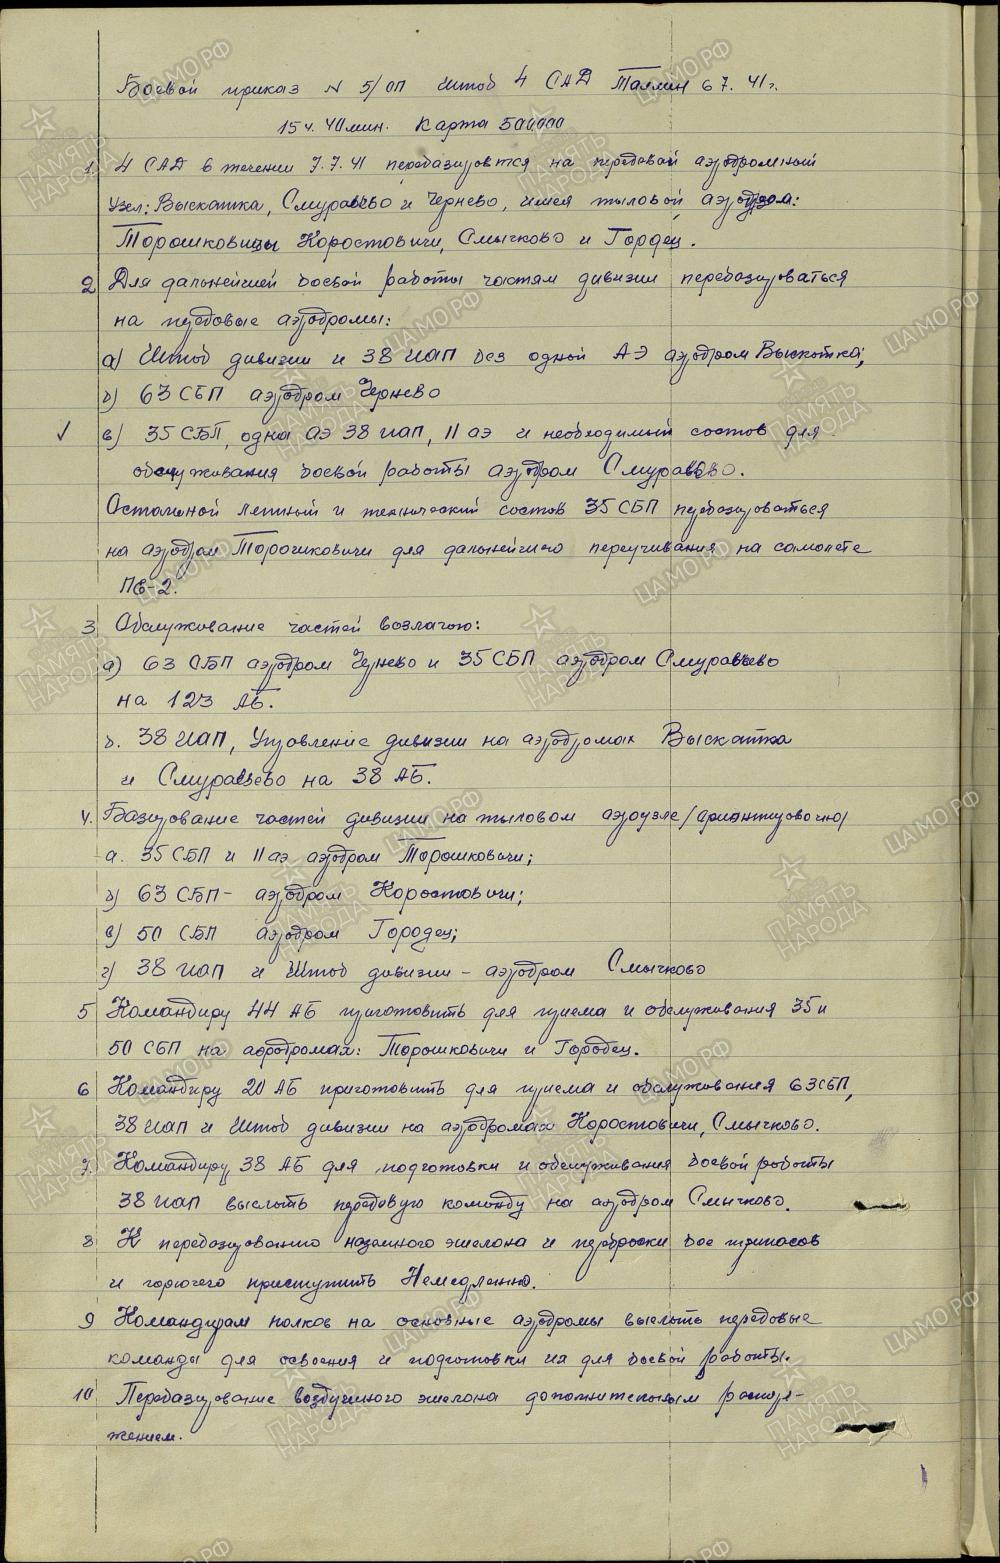 Боевой приказ N 5/ОП Штаб 4 САД Таллин 6 7. 41г.
15ч. 40мин. Карта 500000
1. 4 САД в течении 7.7.41 перебазируется на передовой аэродромный
Узел: Выскатка, Смуравьево и Чернево, имея тыловой аэродром:
Торошковицы Коростовичи, Смычково и Гордец.
2 Для дальнейшей боевой работы частям дивизии перебазироваться
на передовые аэродромы:
а) Штаб дивизии и 38 ИАП без одной АЭ аэродром Выскатка;
б) 63 СБП аэродром Чернево
в) 35 СБП, одна АЭ 38 ИАП, 11 аэ и необходимый состав для
обслуживания боевой работы аэродром Смуравьево.
Остальной летный и технический состав 35 СБП перебазироваться
на аэродром Торошковичи для дальнейшего переучивания на самолете
ПЕ-2.
3 Обслуживание частей возлагаю:
а) 63 СБП аэродром Чернево и 35 СБП аэродром Смуравьево
на 123 АБ.
б. 38 ИАП, Управление дивизии на аэродромах Выскатка
и Смуравьево на 38 АБ.
4. Базирование частей дивизии на тыловом аэроузле /ориентировочно/
а. 35 СБП и 11 аэ аэродром Торошковичи;
б) 63 СБП - аэродром Коростовичи;
в) 50 СБП аэродром Городец;
г) 38 ИАП и Штаб дивизии - аэродром Смычково
5 Командиру 44 АБ приготовить для приема и обслуживания 35 и
50 СБП на аэродромах: Торошковичи и Городец.
6 Командиру 20 АБ приготовить для приема и обслуживания 63 СБП,
38 ИАП и Штаб дивизии на аэродромах Коростовичи, Смычково.
7. Командиру 38 АБ для подготовки и обслуживания боевой работы
38 ИАП выслать передовую команду на аэродром Смычково.
8 К перебазированию наземного эшелона и переброски боеприпасов
и горючего приступить Немедленно.
9 Командирам полков на основные аэродромы выслать передовые
команды для освоения и подготовки их для боевой работы.
10 Перебазирование воздушного эшелона дополнительным распоря-
жением.
ЦАМО.РФ
ПАМЯТЬ НАРОДА